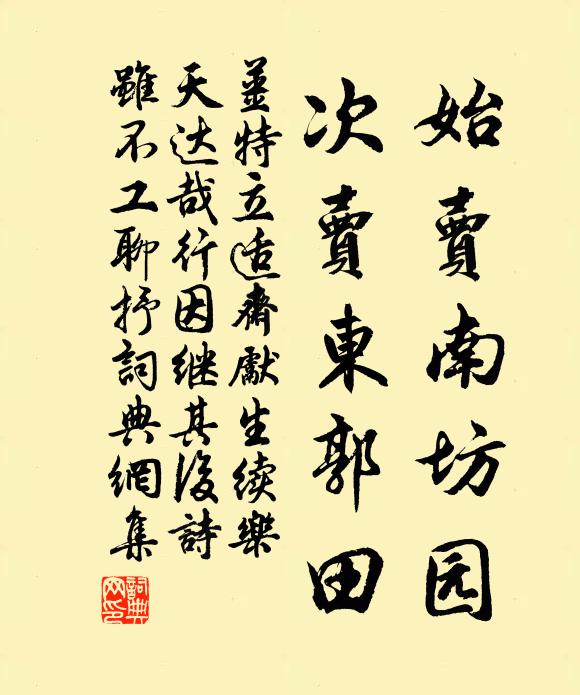 始賣南坊园
次賣東郭田
薑特立适齋獻生续樂
天达哉行因继其後詩
雖不工聊抒詞典網集
詞典
网印